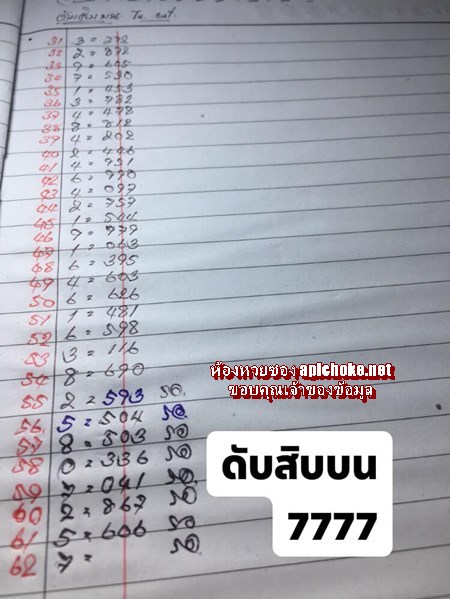 ดับสิบบน
31 3 = 272
32 2 = 872
33 9 = 605
34 7 = 530
35 1 = 453
36 3 = 732
37 4 = 478
38 8 = 812
39 4 = 202
40 2 = 446
41 4 = 731
42 6 = 770
43 4 = 097
44 2 = 757
45 1 = 544
46 9 = 779
47 1 = 063
48 6 = 395
49 4 = 603
50 6 = 626
51 1 = 481
52 6 = 598
53 3 = 116
54 8 = 690
ห้องหวยซอง apichoke.net
ขอบคุณเจ้าของข้อมูล
55 2 = 593 50
56 5 = 504 50
57 8 = 503 50
58 0 = 336 50
59 7 = 041 50
60 2 = 867 50
61 5 = 606 50
62 7 = 50
ดับสิบบน
7777